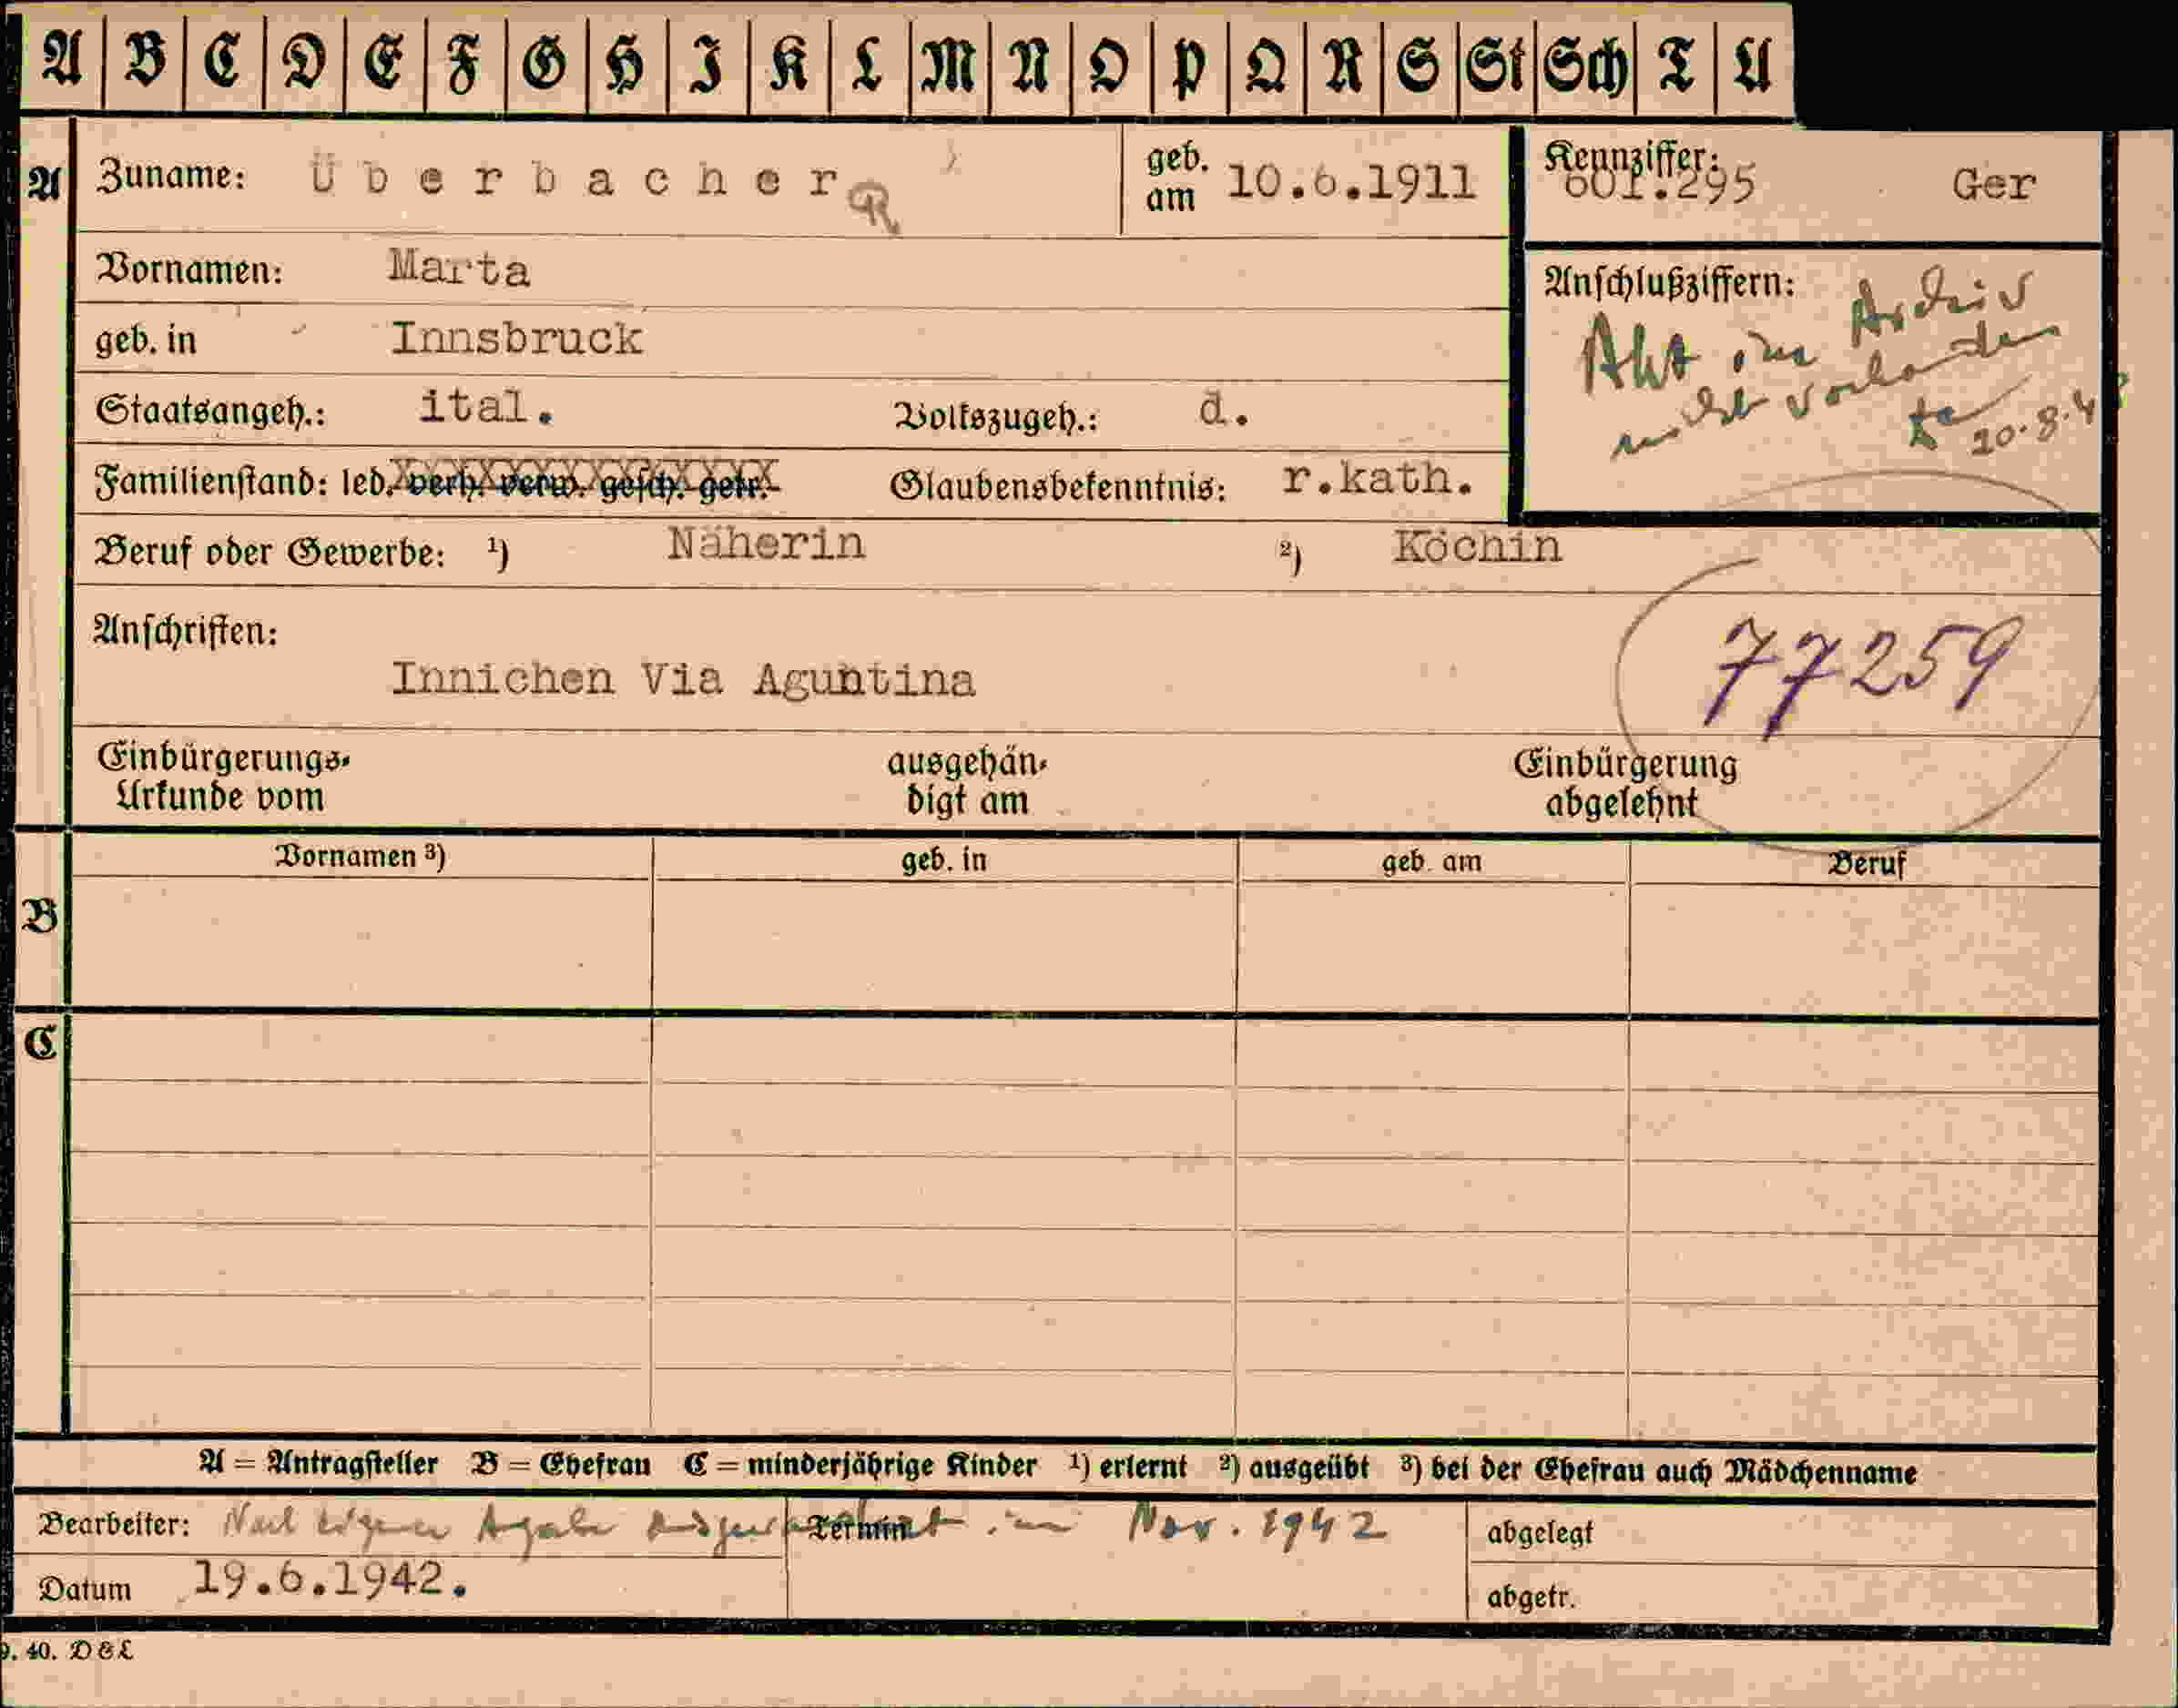 A B C D E F G H I K L M N O P Q R S St Sch T U
A Zuname: Überbacher geb. am 10.6.1911 Kennziffer: 601.295 Ger
Vornamen: Marta
Anschlußziffern:
Akt im Archiv
nicht vorhanden
20.8.4
geb. in Innsbruck
Staatsangeh.: ital. Volkszugeh.: d.
Familienstand: led. verh. verw. gesch. getr. Glaubensbekenntnis: r.kath.
Beruf oder Gewerbe: ¹) Näherin ²) Köchin
Anschriften:
Innichen Via Aguntina
77259
Einbürgerungs-Urkunde vom ausgehändigt am Einbürgerung abgelehnt
B Vornamen ³) geb. in geb. am Beruf
C
A = Antragsteller B = Ehefrau C = minderjährige Kinder ¹) erlernt ²) ausgeübt ³) bei der Ehefrau auch Mädchenname
Bearbeiter: Nach eigener Angabe Termin im Nov. 1942 abgelegt
Datum 19.6.1942. abgetr.
9. 40. D&L